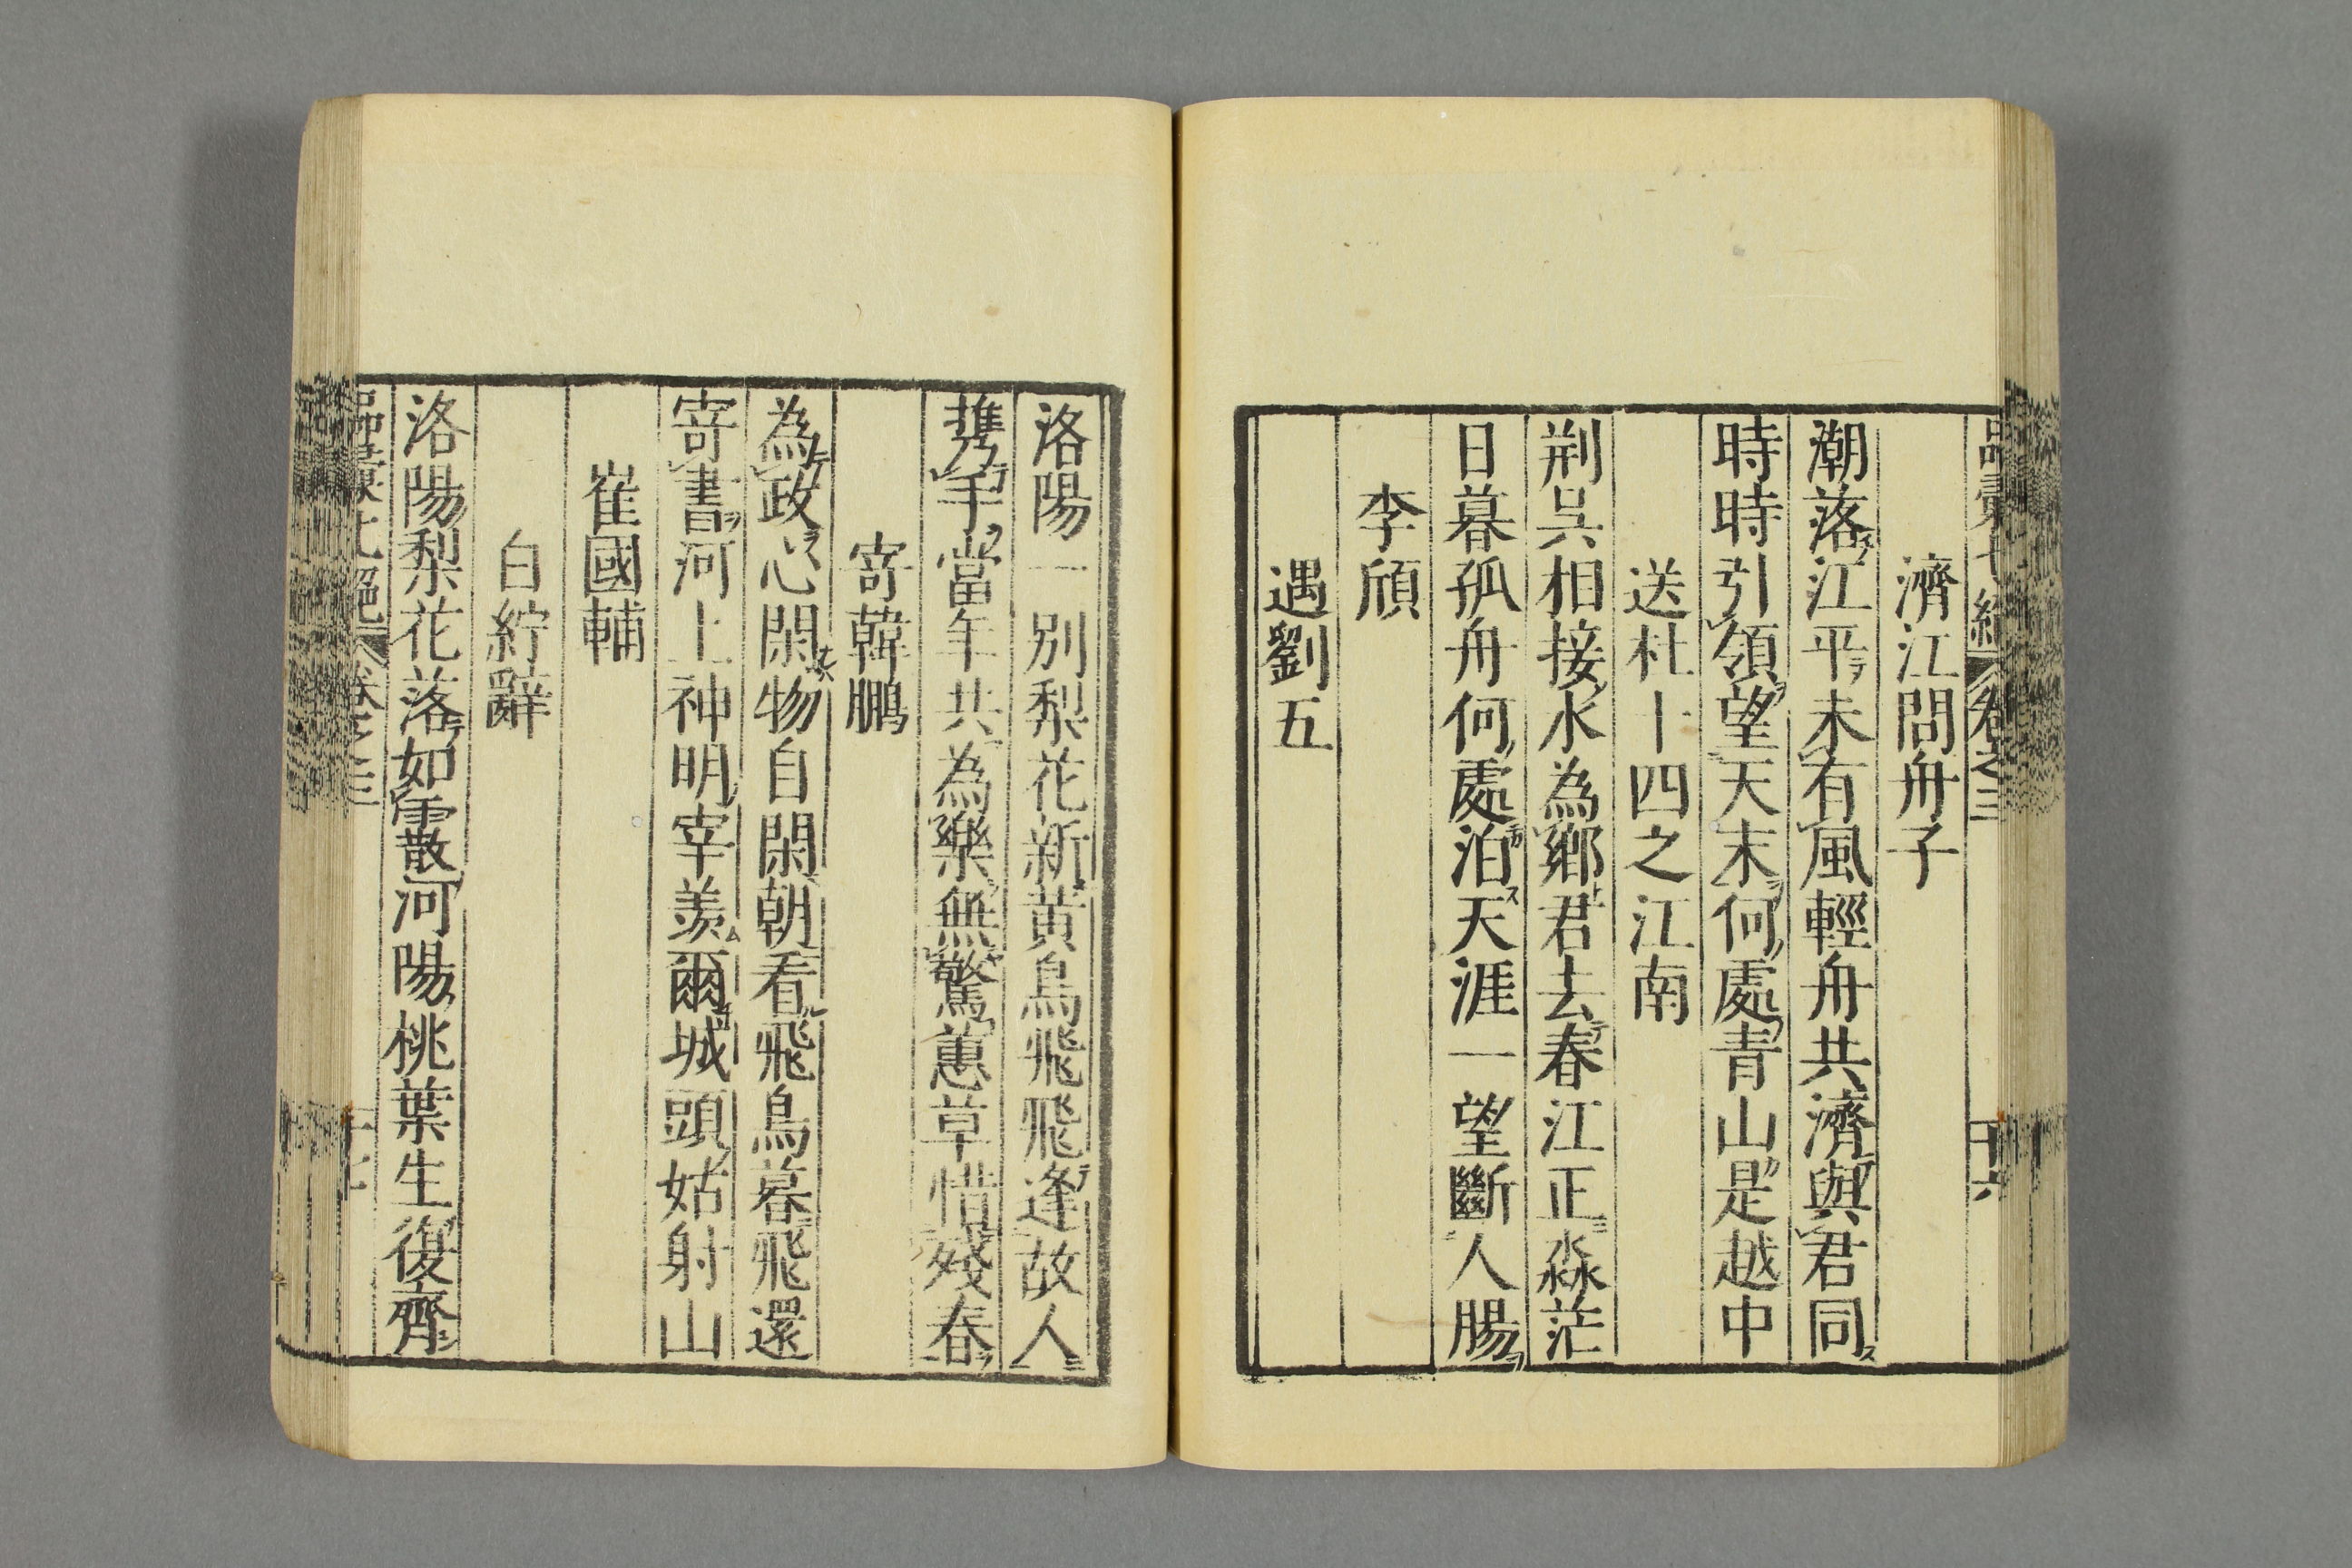 濟江問舟子
潮落江平未有風輕舟共濟與君同
時時引領望天末何處青山是越中
送杜十四之江南
荆吳相接水為鄉君去春江正淼茫
日暮孤舟何處泊天涯一望斷人腸
李頎
遇劉五
洛陽一別梨花新黄鳥飛飛逢故人
携手當年共為樂無驚蕙草惜殘春
寄韓鵬
為政心閑物自閑朝看飛鳥暮飛還
寄書河上神明宰羡爾城頭姑射山
崔國輔
白紵辭
洛陽梨花落如霰河陽桃葉生復齊